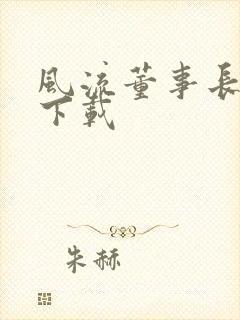 風流董事長
下載
朱赫